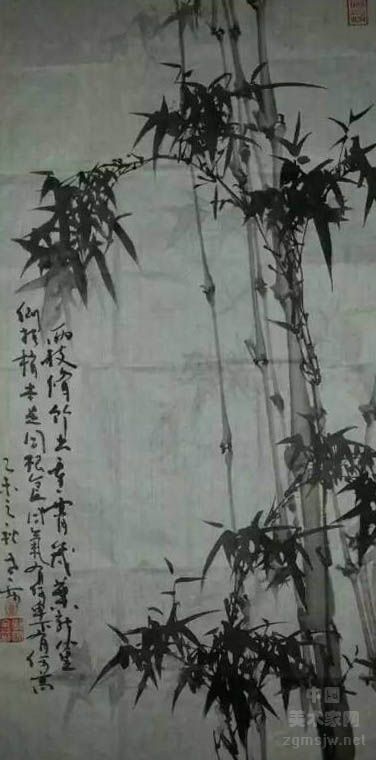 两枝脩竹出重霄幾葉新篁
倒挂梢本是同根复同氣有何卑下有何高
乙未之秋
中国
美术家网
zgmsjw.net